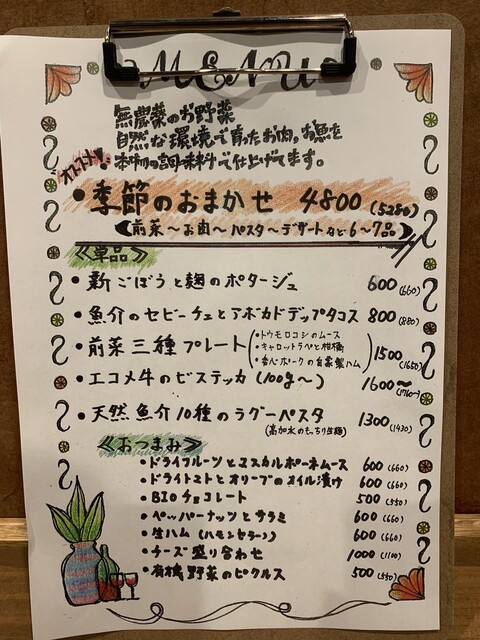 MENU
無農薬のお野菜
自然な環境で育ったお肉、お魚を
本物の調味料で仕上げてます。
オススメ!
・季節のおまかせ 4800 (5280)
(前菜〜お肉〜パスタ〜デザートなど6〜7品)
≪単品≫
・新ごぼうと麹のポタージュ 600 (660)
・魚介のセビーチェとアボカドディップタコス 800 (880)
・前菜三種プレート 1500 (1650)
・トウモロコシのムース
・キャロットラペと柑橘
・香心ポークの自家製ハム
・エコメ牛のビステッカ (100g〜) 1600〜 (1760〜)
・天然魚介10種のラグーパスタ 1300 (1430)
(高加水のもっちり生麺)
≪おつまみ≫
・ドライフルーツとマスカルポーネムース 600 (660)
・ドライトマトとオリーブのオイル漬け 600 (660)
・BIOチョコレート 500 (550)
・ペッパーナッツとサラミ 600 (660)
・生ハム (ハモンセラーノ) 600 (660)
・チーズ盛り合わせ 1000 (1100)
・有機野菜のピクルス 500 (550)